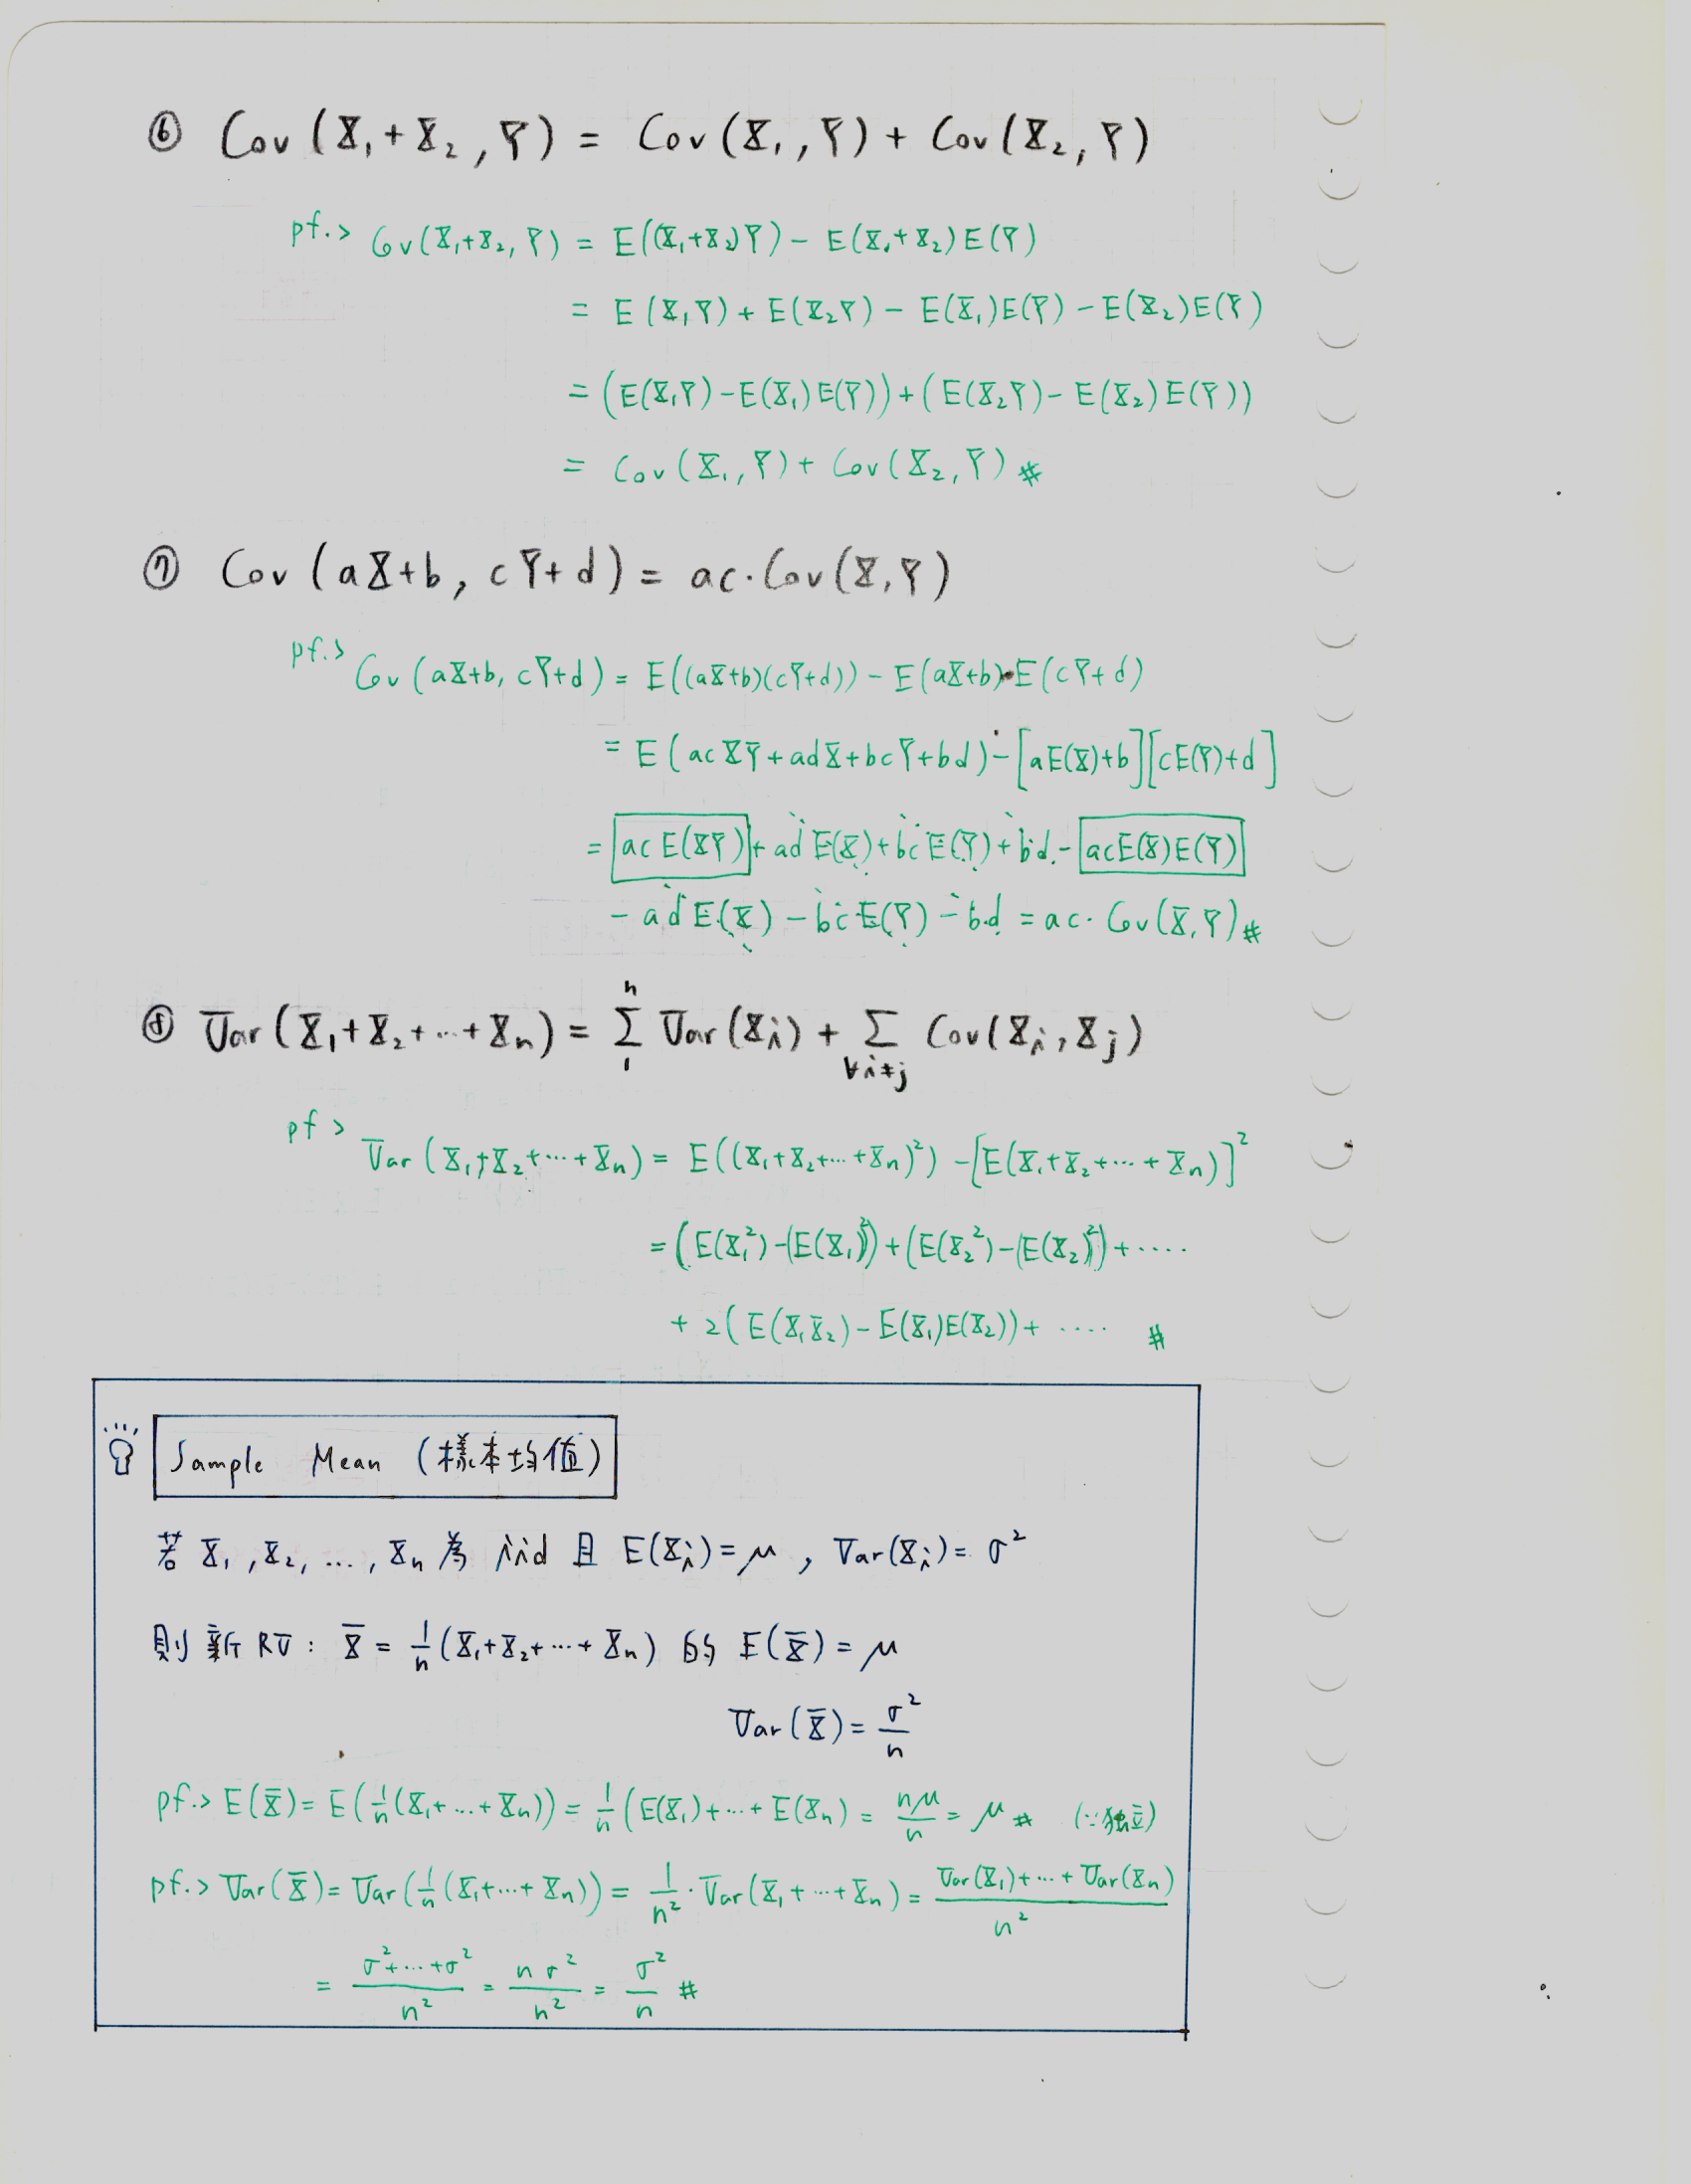 ⑥ Cov(X₁+X₂, Y) = Cov(X₁, Y) + Cov(X₂, Y)
pf.> Cov(X₁+X₂, Y) = E((X₁+X₂)Y) - E(X₁+X₂)E(Y)
= E(X₁Y) + E(X₂Y) - E(X₁)E(Y) - E(X₂)E(Y)
= (E(X₁Y) - E(X₁)E(Y)) + (E(X₂Y) - E(X₂)E(Y))
= Cov(X₁, Y) + Cov(X₂, Y) #
⑦ Cov(aX+b, cY+d) = ac·Cov(X, Y)
pf.> Cov(aX+b, cY+d) = E((aX+b)(cY+d)) - E(aX+b)·E(cY+d)
= E(acXY + adX + bcY + bd) - [aE(X)+b][cE(Y)+d]
= acE(XY) + adE(X) + bcE(Y) + bd - acE(X)E(Y)
- adE(X) - bcE(Y) - bd = ac·Cov(X, Y) #
⑧ Var(X₁+X₂+...+Xₙ) = Σ₁ⁿ Var(Xᵢ) + Σ_{∀i≠j} Cov(Xᵢ, Xⱼ)
pf> Var(X₁+X₂+...+Xₙ) = E((X₁+X₂+...+Xₙ)²) - [E(X₁+X₂+...+Xₙ)]²
= (E(X₁²) - (E(X₁))²) + (E(X₂²) - (E(X₂))²) + .....
+ 2(E(X₁X₂) - E(X₁)E(X₂)) + .... #
Sample Mean (樣本均值)
若 X₁, X₂, ..., Xₙ 為 iid 且 E(Xᵢ) = μ, Var(Xᵢ) = σ²
則新 RV: X̄ = 1/n (X₁+X₂+...+Xₙ) 的 E(X̄) = μ
Var(X̄) = σ²/n
pf.> E(X̄) = E(1/n (X₁+...+Xₙ)) = 1/n (E(X₁)+...+E(Xₙ) = nμ/n = μ # (∵独立)
pf.> Var(X̄) = Var(1/n (X₁+...+Xₙ)) = 1/n² · Var(X₁+...+Xₙ) = Var(X₁)+...+Var(Xₙ) / n²
= σ²+...+σ² / n² = nσ²/n² = σ²/n #